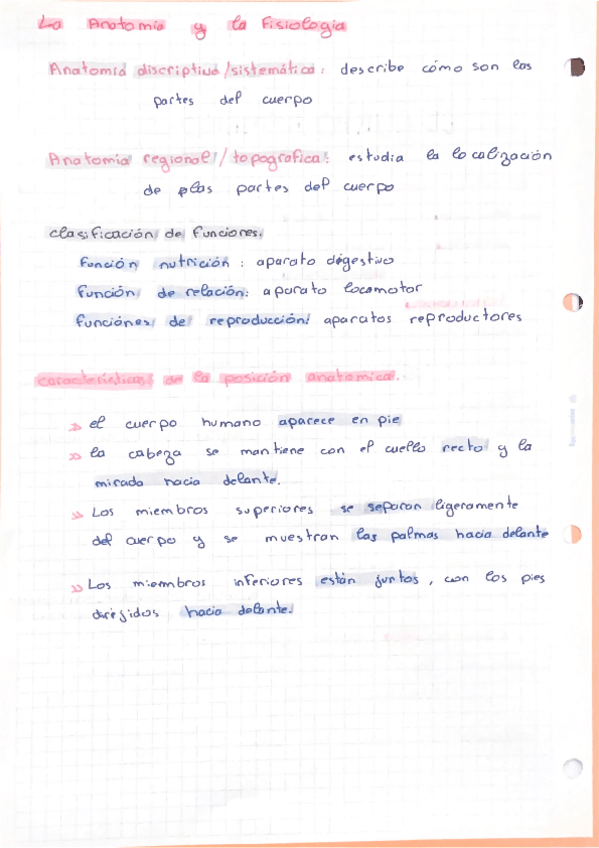 La Anatomía y la Fisiología
Anatomía discriptiva/sistemática: describe cómo son las
partes del cuerpo
Anatomía regional/topográfica: estudia la localización
de plas partes del cuerpo
clasificación de funciones.
función nutrición: aparato digestivo
función de relación: aparato locomotor
funciónes de reproducción: aparatos reproductores
características de la posición anatomica.
el cuerpo humano aparece en pie
la cabeza se mantiene con el cuello recto y la
mirada hacia delante.
Los miembros superiores se separan ligeramente
del cuerpo y se muestran las palmas hacia delante
Los miembros inferiores están juntos, con los pies
dirijidos hacia delante.